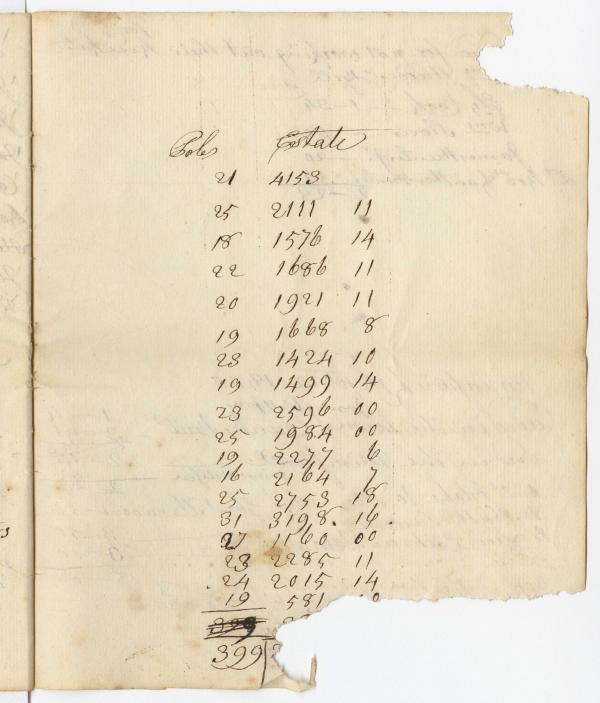 Poles Estate
21 4153
25 2111 11
18 1576 14
22 1686 11
20 1921 11
19 1668 8
23 1424 10
19 1499 14
23 2596 00
25 1984 00
19 2277 6
16 2164 7
25 2753 18
31 3198. 16.
27 1560 00
23 2285 11
24 2015 14
19 581
399
399